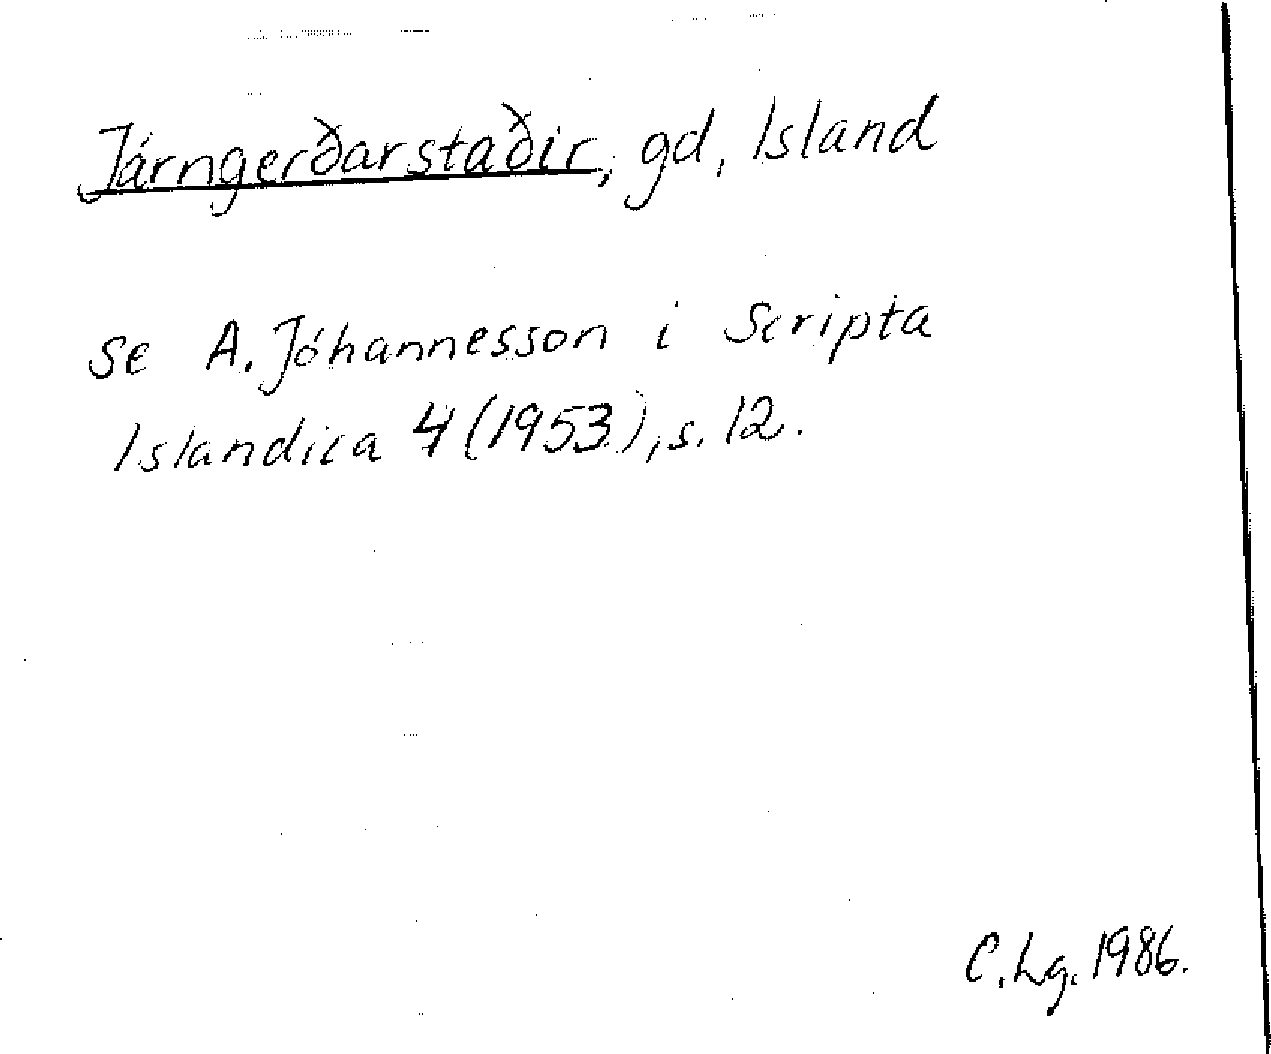 Járngerðarstaðir, gd, Island
se A. Jóhannesson i Scripta
Islandica 4 (1953), s. 12.
C. Lg. 1986.